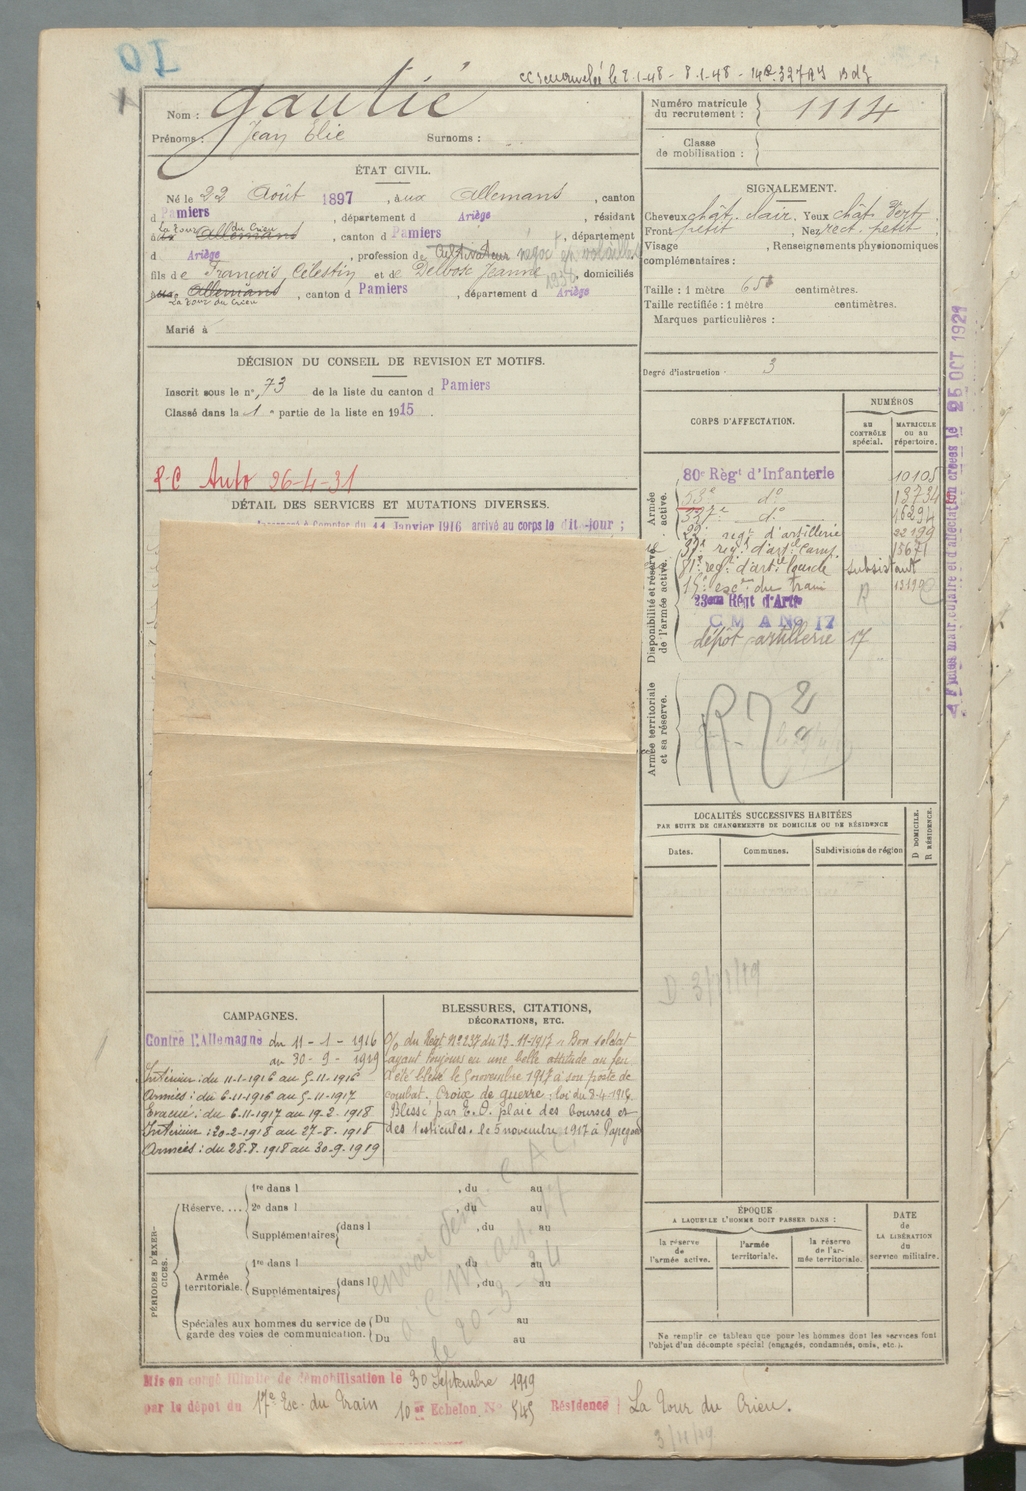 Nom : Gautié
Prénoms : Jean Elie Surnoms :
Numéro matricule du recrutement : 1114
Classe de mobilisation :
ÉTAT CIVIL.
Né le 22 Août 1897, aux Allemans, canton
d Pamiers, département d Ariège, résidant
La Tour du Crieu
aux Allemans, canton d Pamiers, département
d Ariège, profession de Cultivateur négoct en volailles
fils de François Célestin et de Delbosc Jeanne, domiciliés
1938
aux Allemans, canton d Pamiers, département d Ariège
La Tour du Crieu
Marié à
DÉCISION DU CONSEIL DE REVISION ET MOTIFS.
Inscrit sous le n° 73 de la liste du canton d Pamiers
Classé dans la 1e partie de la liste en 1915.
P.C Auto 26-4-31
DÉTAIL DES SERVICES ET MUTATIONS DIVERSES.
à Compter du 11 Janvier 1916 arrivé au corps le dit jour ;
SIGNALEMENT.
Cheveux chât. clair. Yeux chât. Vert.
Front petit, Nez rect. petit.
Visage , Renseignements physionomiques
complémentaires :
Taille : 1 mètre 65 centimètres.
Taille rectifiée : 1 mètre centimètres.
Marques particulières :
Degré d'instruction : 3
CORPS D'AFFECTATION.
NUMÉROS
AU CONTRÔLE spécial.
MATRICULE ou au répertoire.
Armée active.
Disponibilité et réserve de l'armée active.
Armée territoriale et sa réserve.
80e Régt d'Infanterie 10105
53e do 13734
327e do 16294
22e régt d'artillerie 22199
37e régt d'artie camp. 15671
81e régt d'artie lourde subsistant
15e escon du train
23eme Régt d'Artie R
C M A No 17
dépôt artillerie 17
R
LOCALITÉS SUCCESSIVES HABITÉES
PAR SUITE DE CHANGEMENTS DE DOMICILE OU DE RÉSIDENCE
Dates. Communes. Subdivisions de région
D DOMICILE.
R RÉSIDENCE.
D 3/11/19
CAMPAGNES.
Contre l'Allemagne du 11-1-1916
au 30-9-1919
Intérieur : du 11-1-1916 au 5-11-1916
Armées : du 6-11-1916 au 5-11-1917
Evacué : du 6-11-1917 au 19-2-1918
Intérieur : 20-2-1918 au 27-8-1918
Armées : du 28-8-1918 au 30-9-1919
BLESSURES, CITATIONS,
DÉCORATIONS, ETC.
O/ du Régt n° 237 du 13-11-1917 « Bon soldat
ayant toujours eu une belle attitude au feu
a été blessé le 5 novembre 1917 à son poste de
combat. Croix de guerre ; loi du
Blessé par E.O. plaie des bourses et
des testicules. le 5 novembre 1917 à
PÉRIODES D'EXERCICES.
Réserve....
1re dans l , du au
2e dans l , du au
Supplémentaires dans l , du au
Armée territoriale.
1re dans l du au
Supplémentaires dans l , du au
Spéciales aux hommes du service de garde des voies de communication.
Du au
Du au
le 20-3-34
ÉPOQUE
A LAQUELLE L'HOMME DOIT PASSER DANS :
la réserve de l'armée active.
l'armée territoriale.
la réserve de l'armée territoriale.
DATE
de
LA LIBÉRATION
du
service militaire.
Ne remplir ce tableau que pour les hommes dont les services font
l'objet d'un décompte spécial (engagés, condamnés, omis, etc.).
Mis en congé illimité de démobilisation le 30 Septembre 1919
par le dépôt du 17e Esc. du Train 10e Echelon No 545 Résidence : La Tour du Crieu.
3/11/19